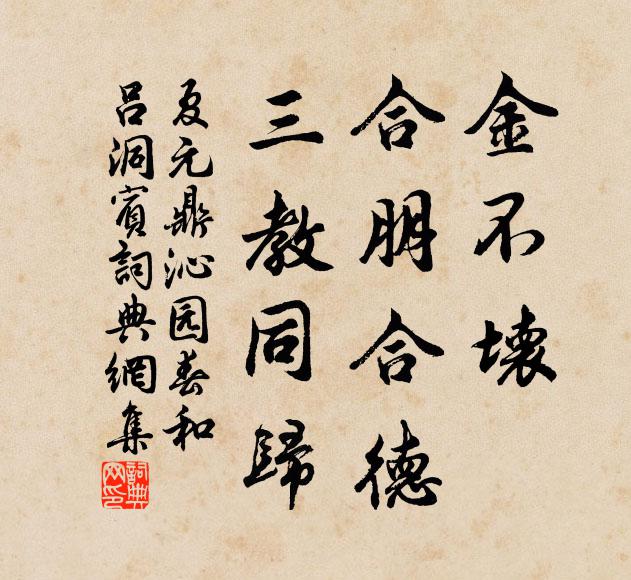 金不壞
合朋合德
三教同歸
夏元鼎沁园春和
呂洞賓詞典網集
詞典网印